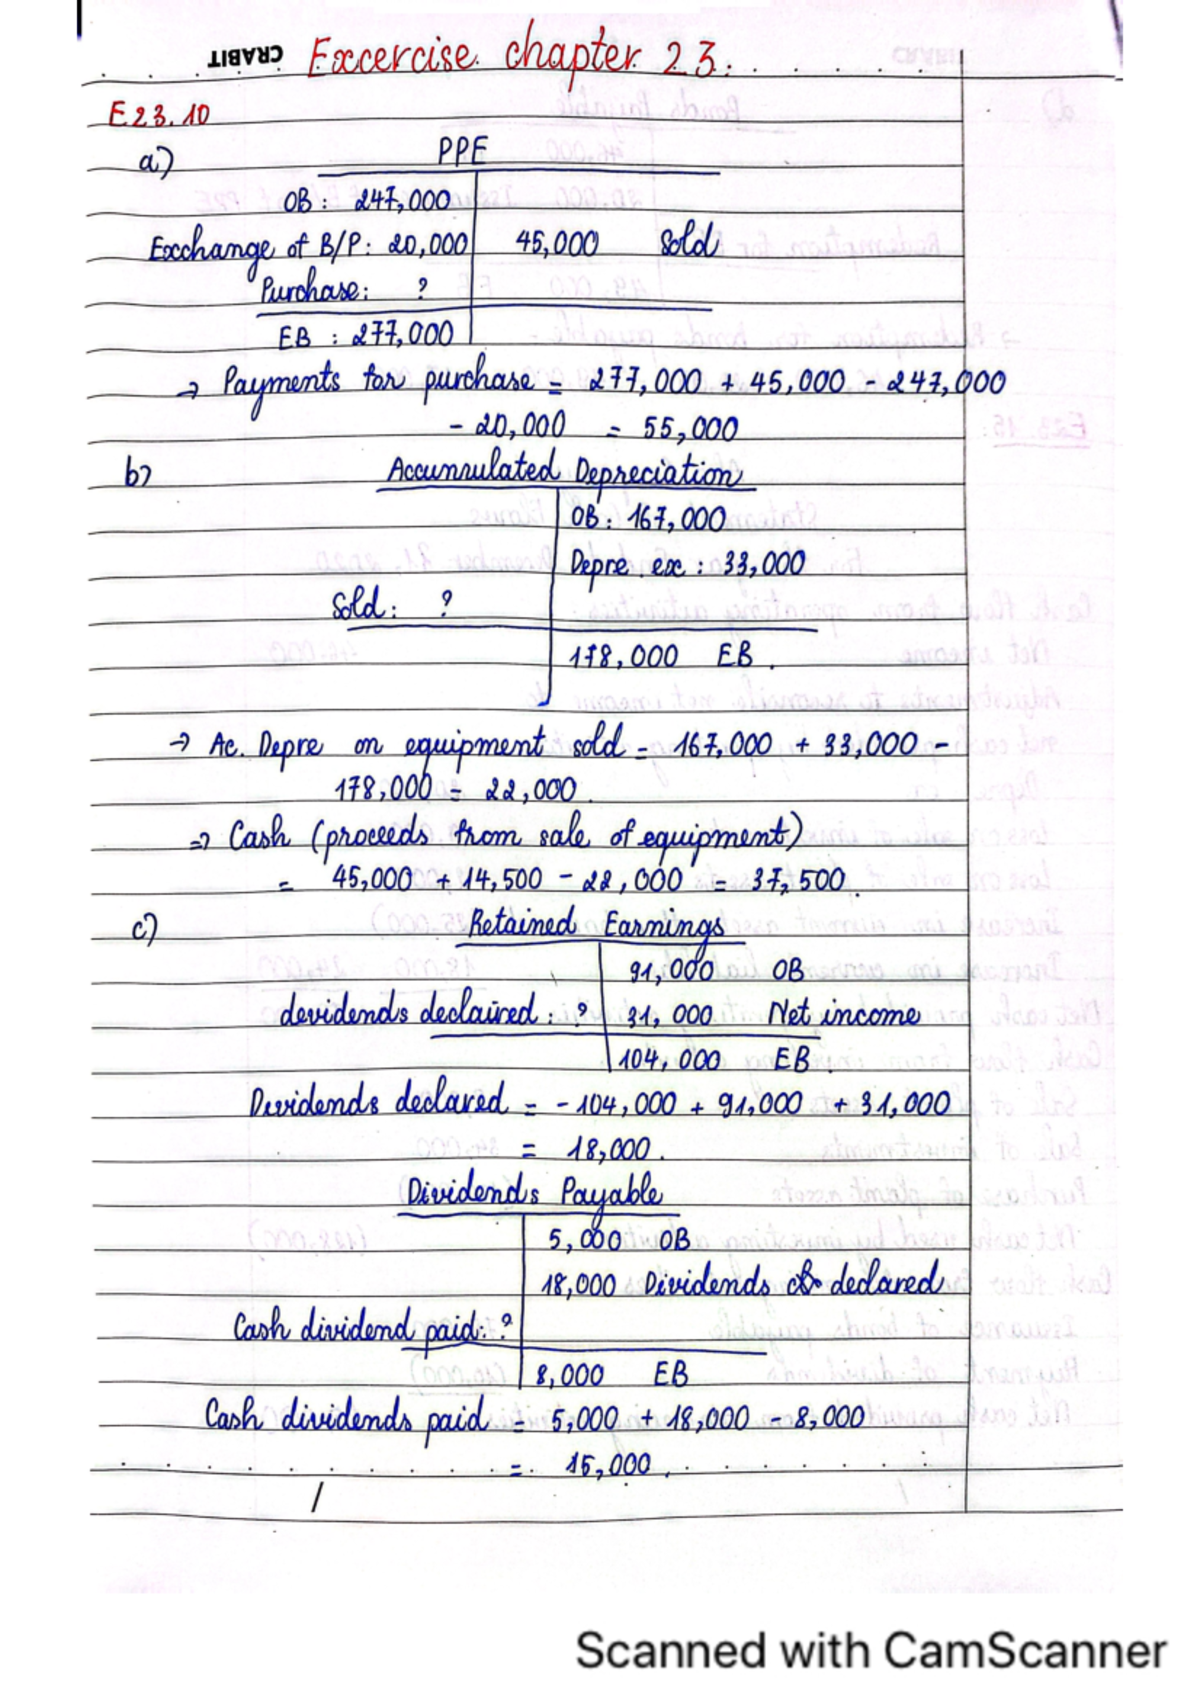 CRABIT Excercise chapter 23.
E23.10
a) PPE
OB: 247,000
Exchange of B/P: 20,000 45,000 Sold
Purchase: ?
EB : 277,000
→ Payments for purchase = 277,000 + 45,000 - 247,000
- 20,000 = 55,000
b) Accumulated Depreciation
OB: 167,000
Depre. ex : 33,000
Sold: ?
178,000 EB.
→ Ac. Depre on equipment sold = 167,000 + 33,000 -
178,000 = 22,000.
=> Cash (proceeds from sale of equipment)
= 45,000 + 14,500 - 22,000 = 37,500.
c) Retained Earnings
91,000 OB
devidends declaired: ? 31,000 Net income
104,000 EB.
Dividends declared = - 104,000 + 91,000 + 31,000
= 18,000.
Dividends Payable
5,000 OB
18,000 Dividends declared
Cash dividend paid: ?
8,000 EB
Cash dividends paid = 5,000 + 18,000 - 8,000
= 15,000.
Scanned with CamScanner